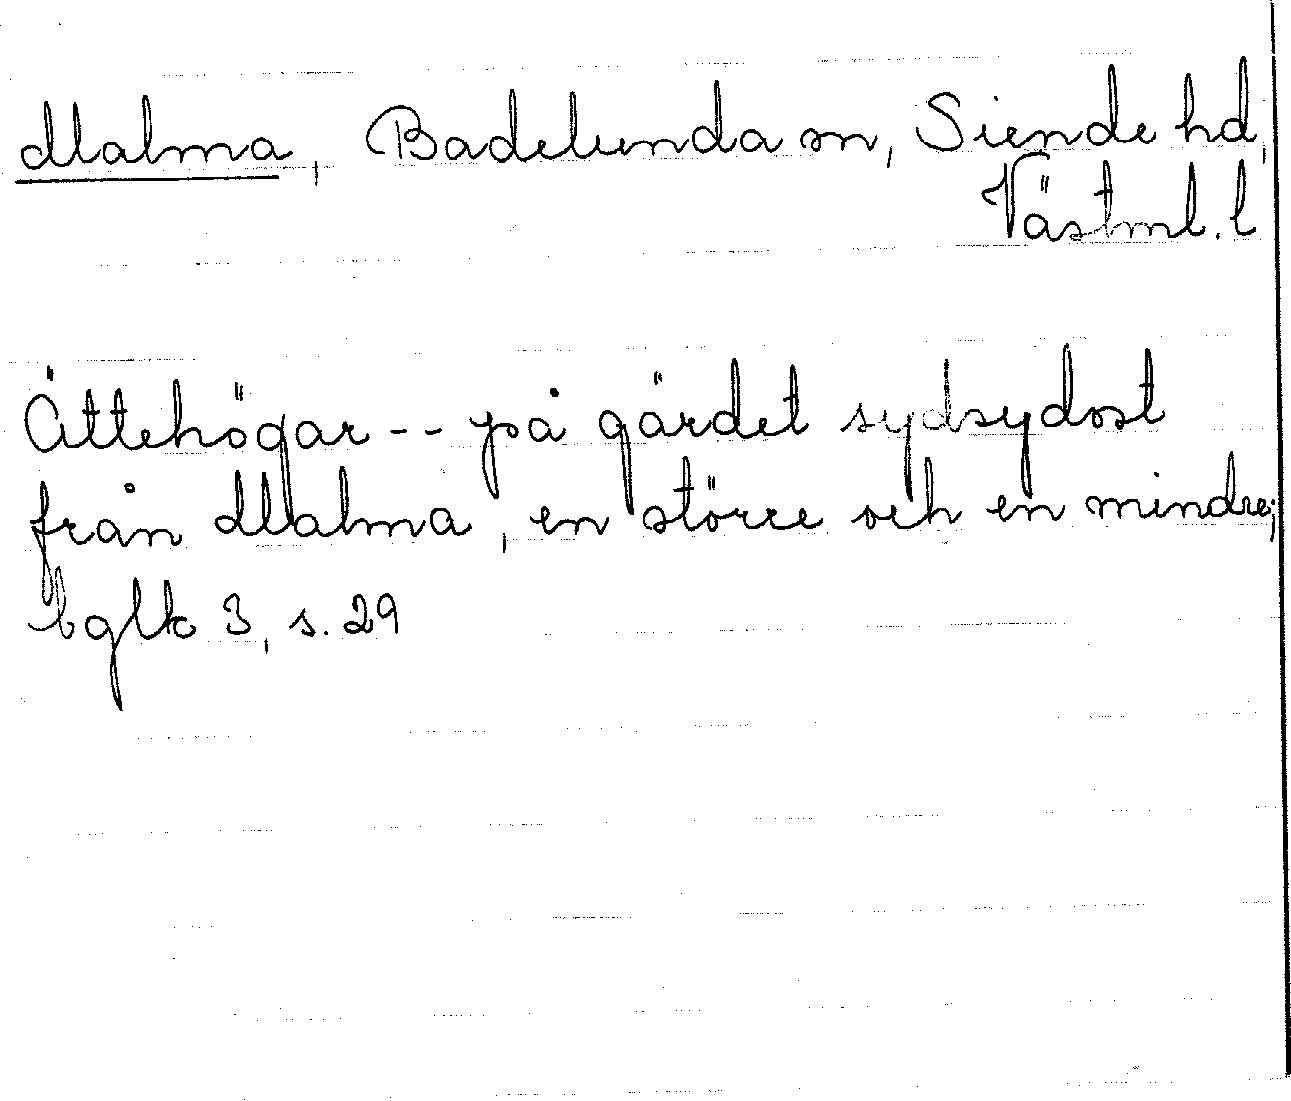 Malma, Badelunda sn, Siende hd,
Västml. l
Ättehögar -- på gärdet sydsydost
från Malma, en större och en mindre;
bglk 3, s. 29